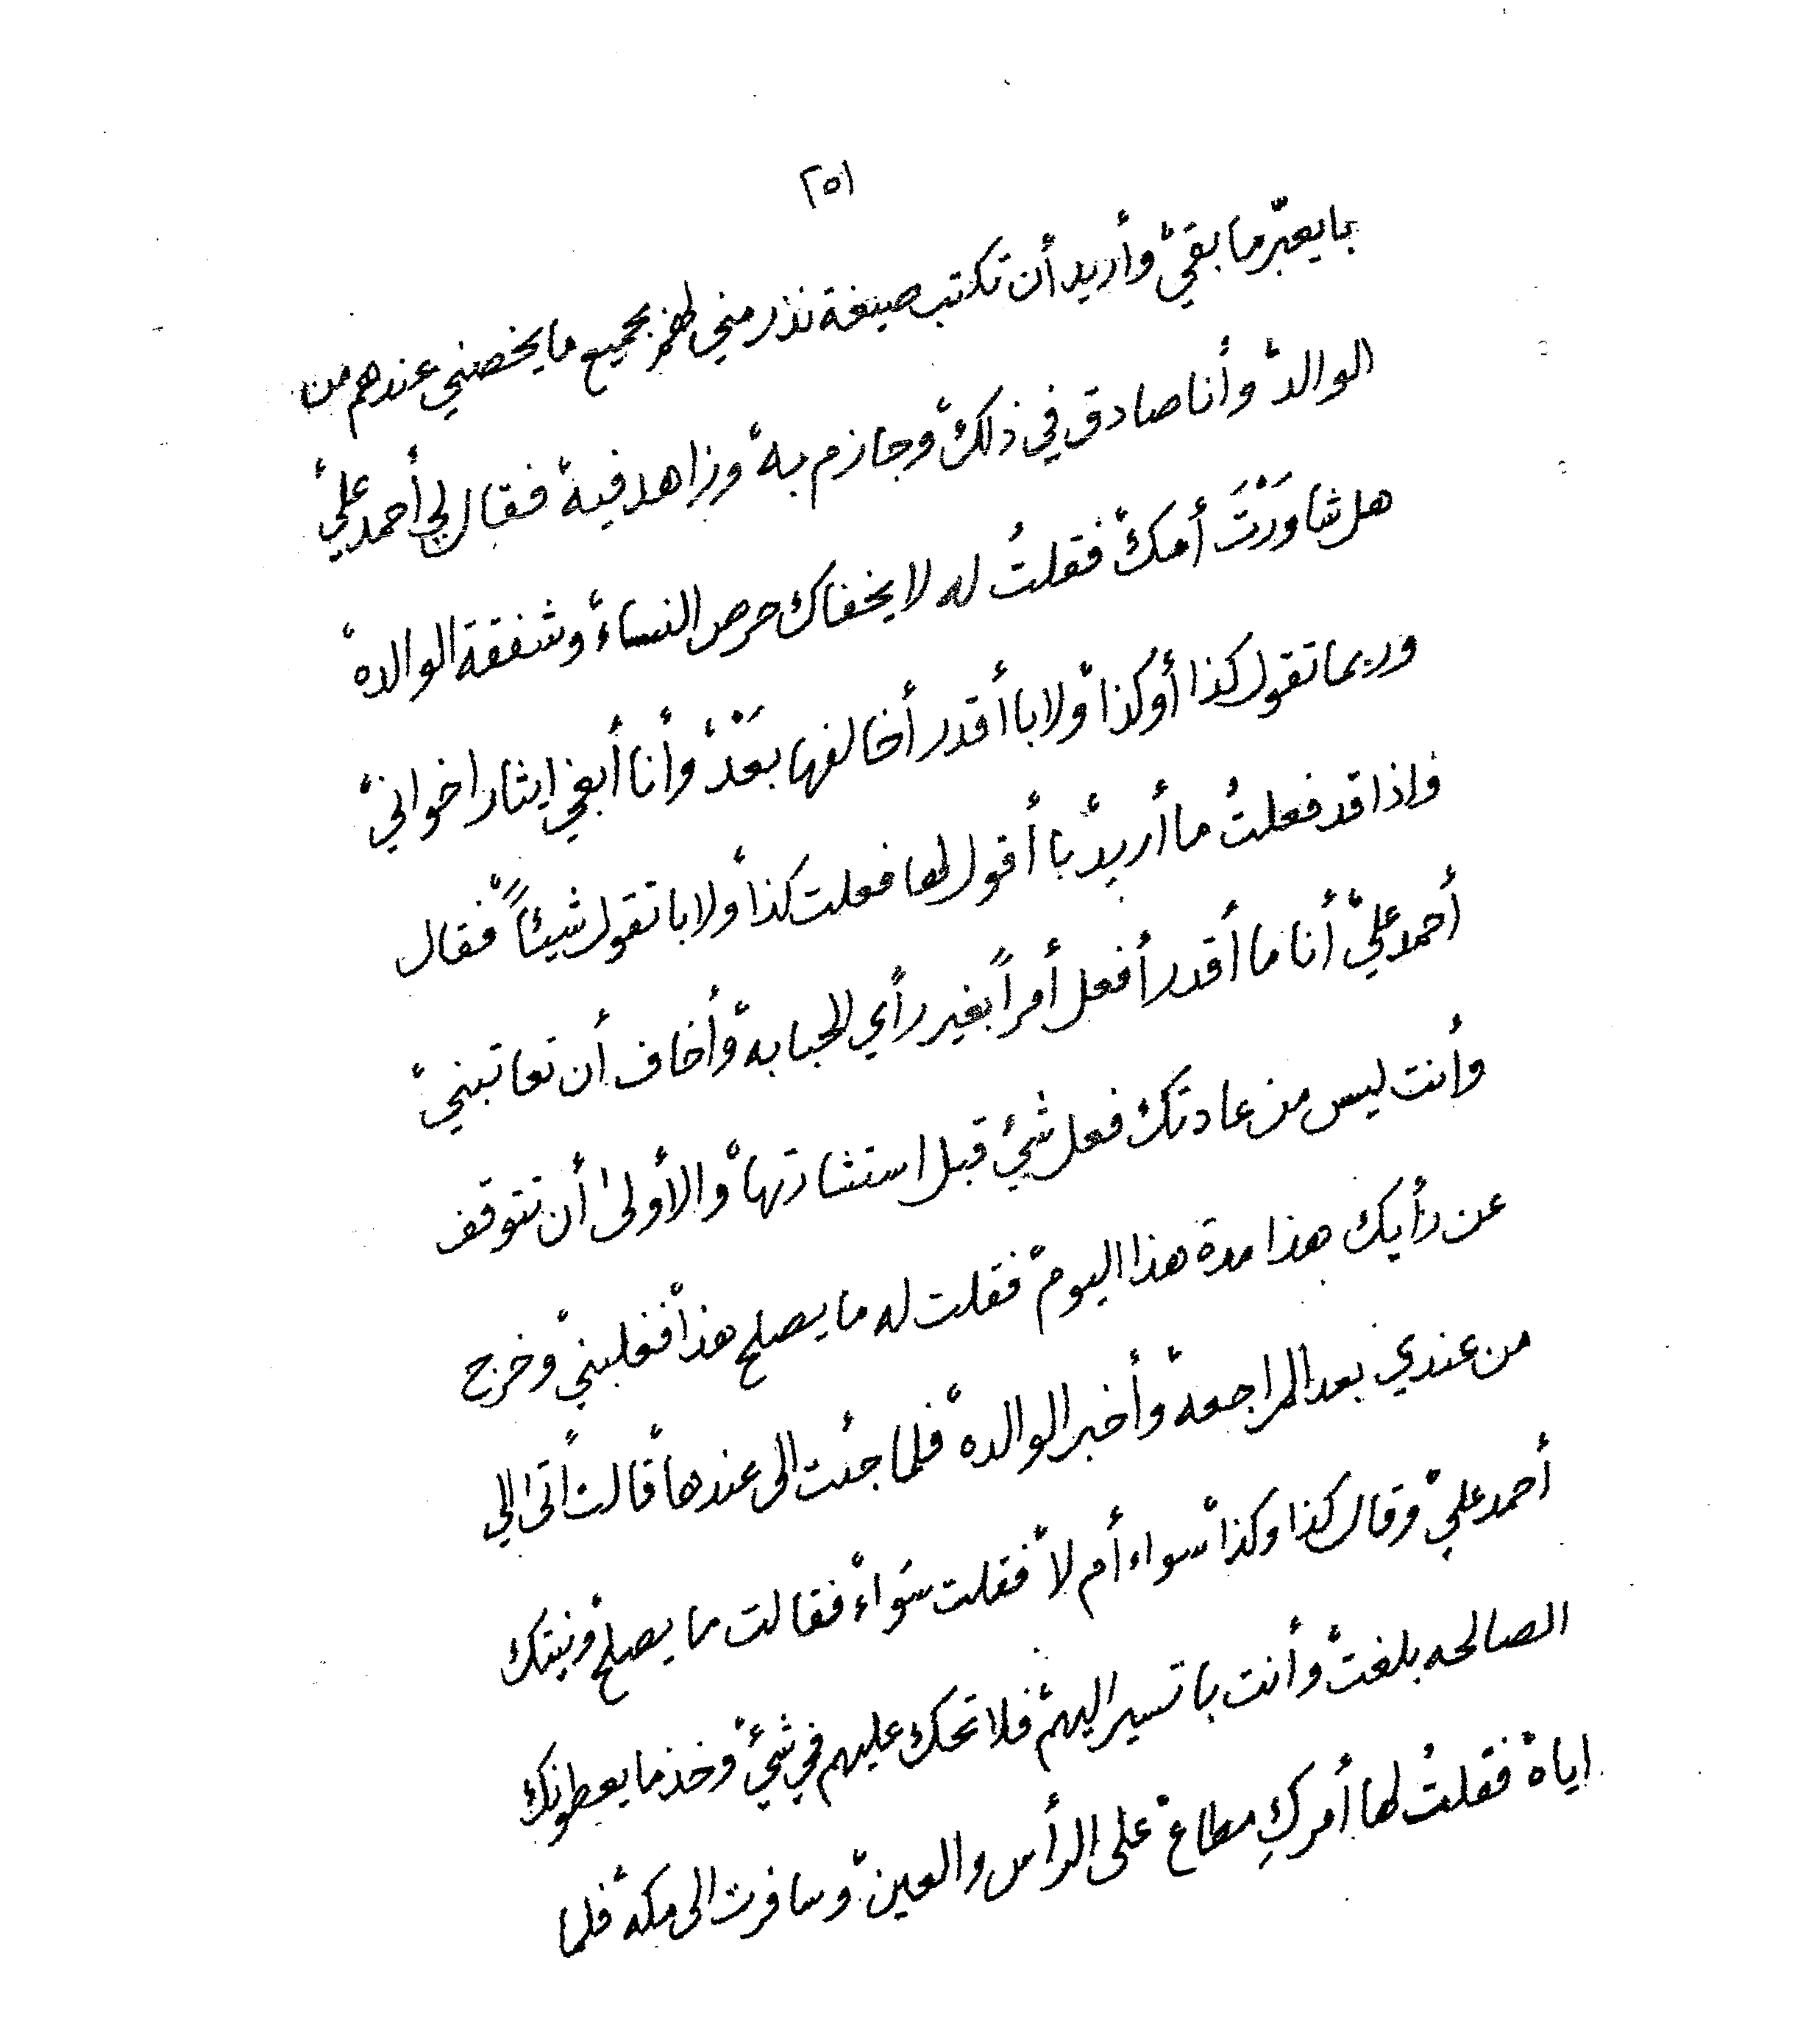 ٢٥١
بايعبّر ما بقي، وأريد أن تكتب صيغة نذر مني لهم بجميع ما يخصني عندهم من
الوالد، وأنا صادق في ذلك، وجازم به، وزاهد فيه، فقال لي أحمد علي،
هل شاوَرْتَ أمك، فقلتُ له لا يخفاك حرص النساء، وشفقة الوالده،
وربما تقول كذا أو كذا، ولا با أقدر أخالفها بَعَدْ، وأنا أبغي ايثار اخواني،
فاذا قد فعلتُ ما أريد، با أقول لها فعلت كذا، ولا با تقول شيئاً، فقال
أحمد علي، أنا ما أقدر أفعل أمراً بغير رأي الحبابه، وأخاف أن تعاتبني،
وأنت ليس من عادتك فعل شيء قبل استشارتها، والأولى أن تتوقف
عن رأيك هذا مدة هذا اليوم، فقلت له ما يصلح هذا، فغلبني، وخرج
من عندي بعد المراجعه، وأخبر الوالده، فلما جئت الى عندها، قالت، أتى إلي
أحمد علي، وقال كذا وكذا، سواء أم لا، فقلت سَواء، فقالت ما يصلح، ونيتك
الصالحه بلغت، وأنت با تسير اليهم، فلا تحك عليهم في شيء، وخذ ما يعطونك
اياه، فقلتُ لها أمركِ مطاع، على الرأس والعين، وسافرت الى مكه، فلما